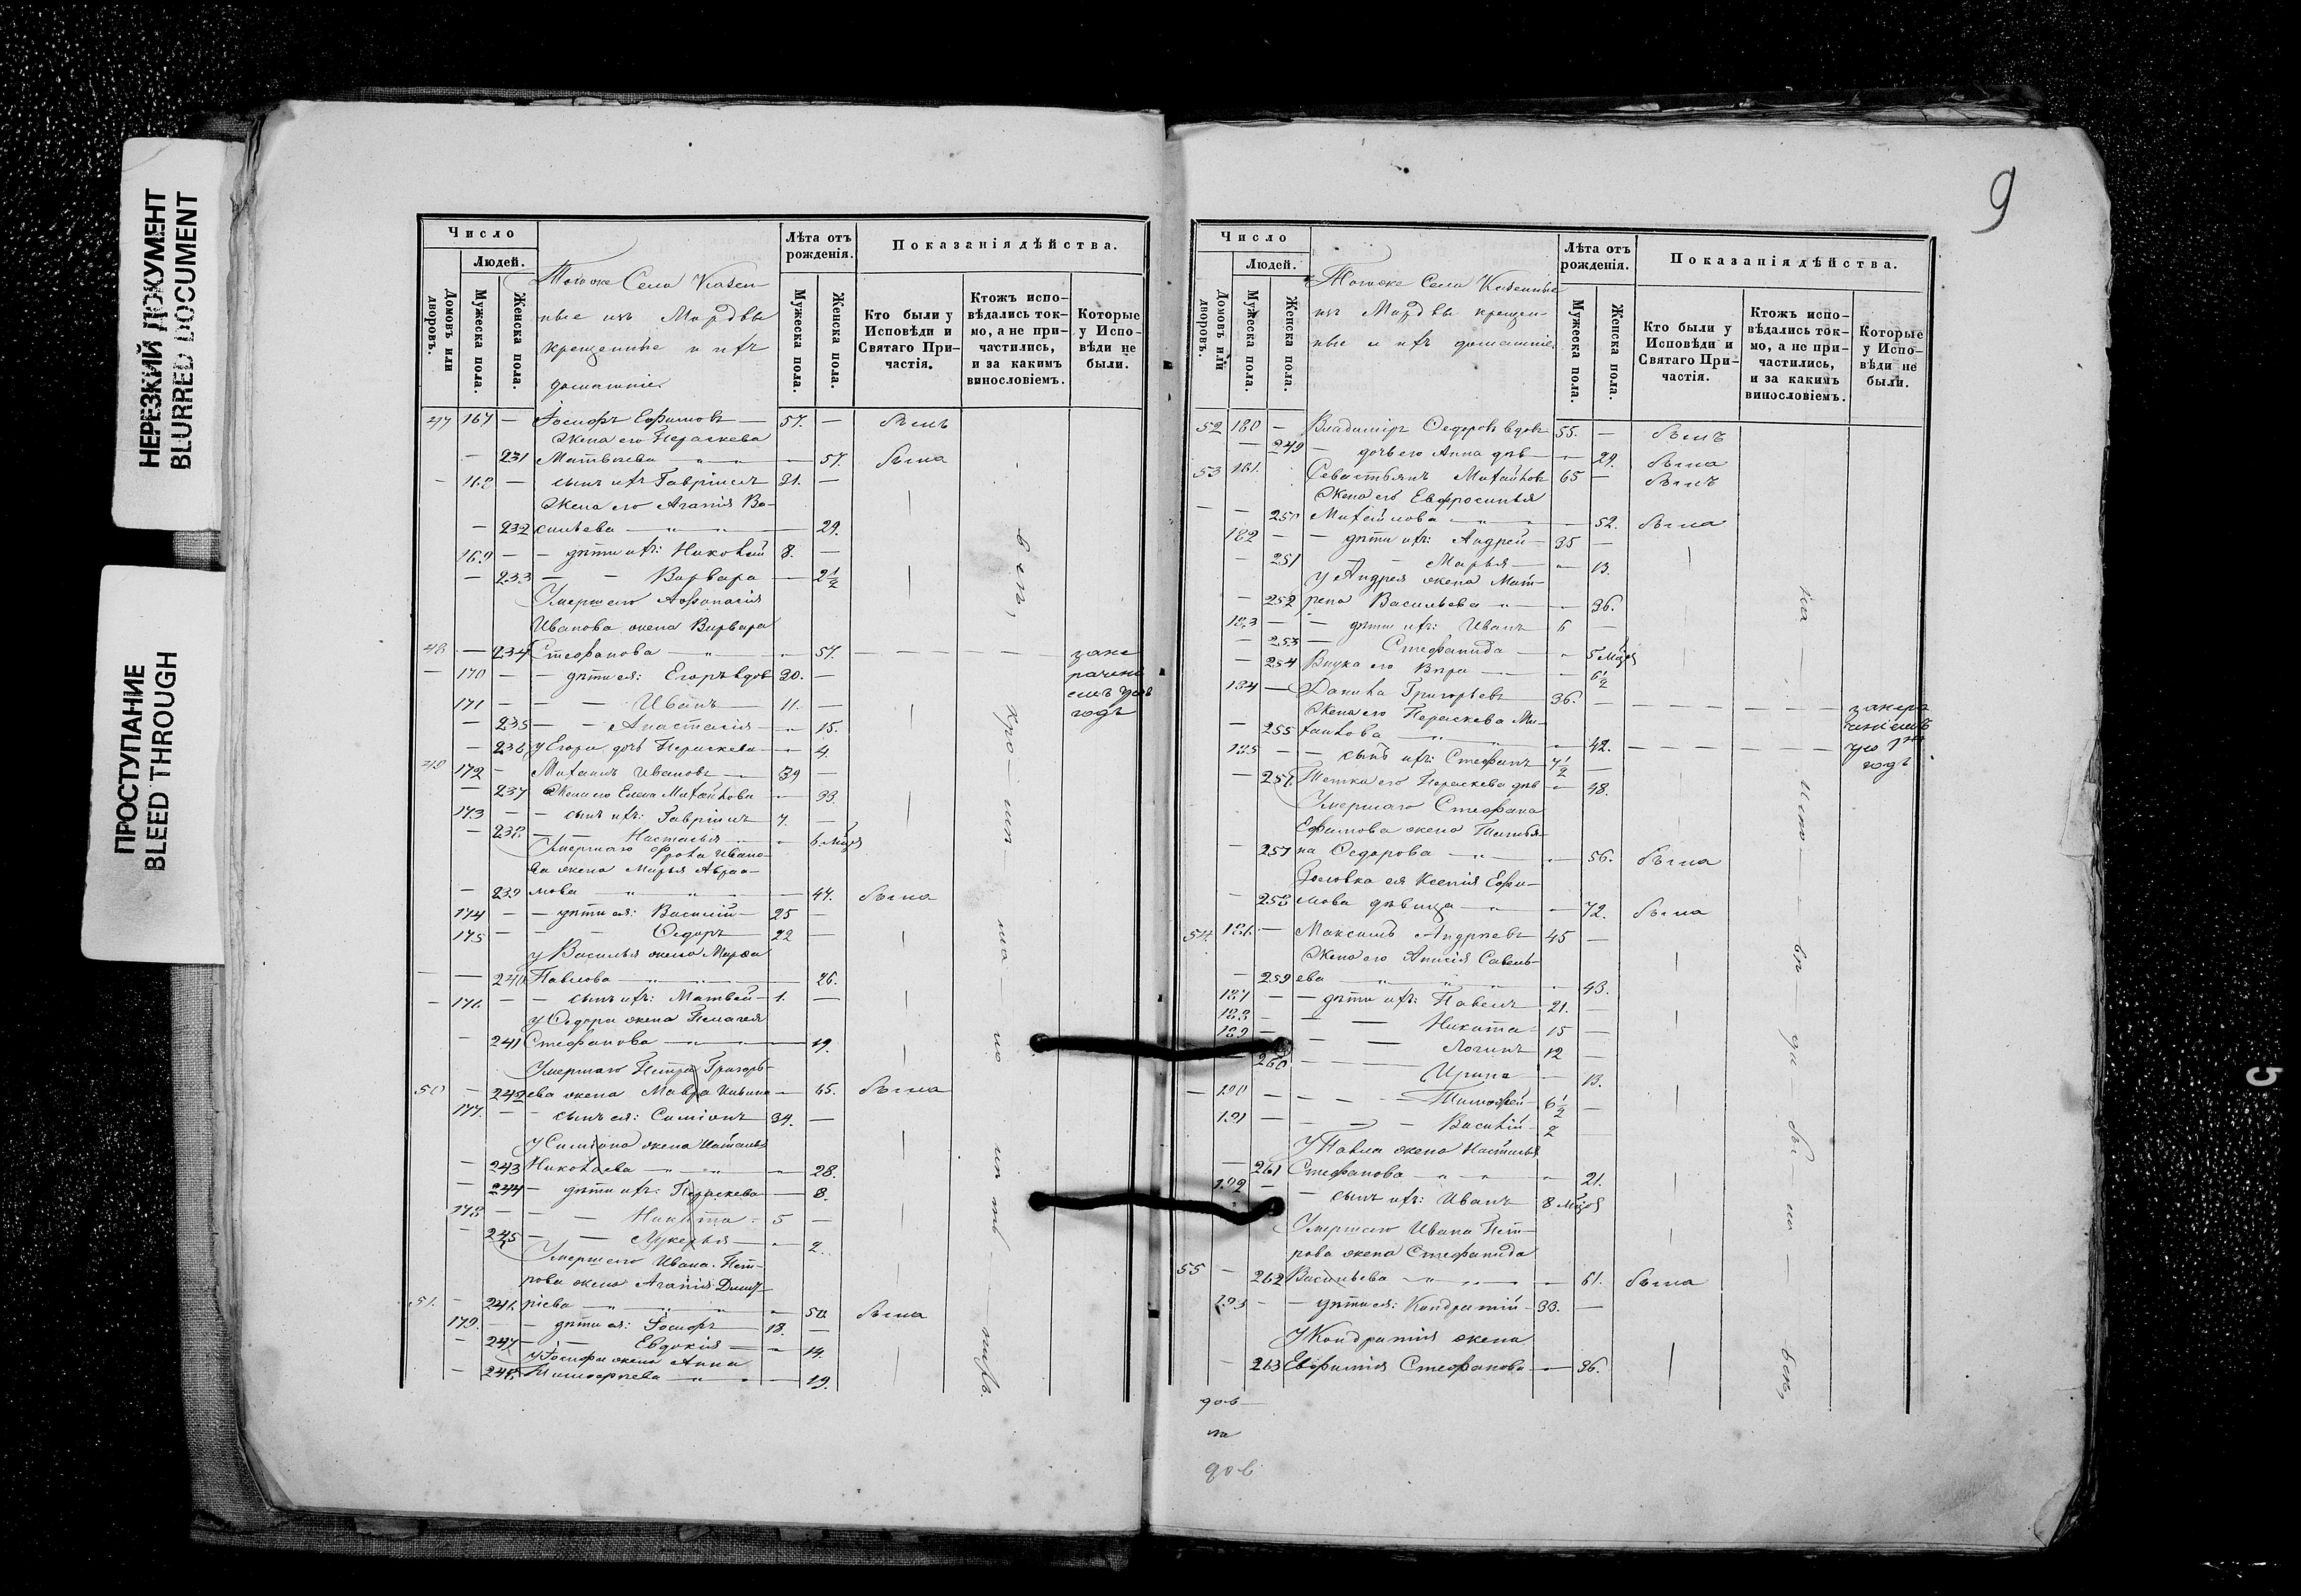 НЕРЕЗКИЙ ДОКУМЕНТ
BLURRED DOCUMENT
ПРОСТУПАНИЕ
BLEED THROUGH
Число
Людей.
Домовъ или дворовъ.
Мужеска пола.
Женска пола.
Тогоже Села Казен-
ные изъ Мордвы
крещенные и ихъ
домашніе
Лѣта отъ рожденія.
Мужеска пола.
Женска пола.
Показанія дѣйства.
Кто были у Исповѣди и Святаго При-частія.
Ктожъ испо-вѣдались ток-мо, а не при-частились, и за какимъ винословіемъ.
Которые у Испо-вѣди не были.
47 167 — Іосифъ Ефимовъ — 57. — былъ
Жена его Пераскева
— 231 Матвѣева — 57. была
— 168 — сынъ ихъ Гавріилъ 31. —
Жена его Агапія Ва-
— 232 сильева — 29.
169 — — дѣти ихъ: Николай 8. —
— 233 — — Варвара — 2 1/2
Умершаго Афонасія
Иванова жена Варвара
48 — 234 Стефанова — 57. —
— 170 — — дѣти ея: Егоръ вдов 30. —
171 — — — Иванъ — 11. —
— 235 — — Анастасія — 15.
— 236 у Егора дочь Пераскева — 4.
49 172 — Михаилъ Ивановъ — 39 —
— 237 Жена его Елена Михайлова — 33.
173 — — сынъ ихъ: Гавріилъ 7. —
— 238 — — Настасья — 6 мцзя
Умершаго Фрола Ивано-
ва жена Марья Абраа-
— 239 мова — 47. была
174 — — дѣти ея: Василій — 25 —
175 — — — Ѳедоръ 22 —
у Василья жена Марѳа
— — 240 Павлова — 26.
— 176. — — сынъ ихъ: Матвей — 1. —
у Ѳедора жена Пелагея
— 241 Стефанова — 19.
Умершаго Петра Григорь-
50 — 242 ева жена Мавра — 65. была
177. — — сынъ ея: Симіонъ 34. —
У Симіона жена Наталья
— 243 Николаева — 28.
— 244 — дѣти ихъ: Пераскева — 8.
178 — — — Никита: 5 —
— 245 — — Лукерья — 2.
Умершаго Ивана Пет-
рова жена Агапія Дмит-
51. — 246 ріева — 50. была
179. — — дѣти ея: Іосифъ 18. —
— 247 — — Евдокія — 14.
у Іосифа жена Анна
— 248. Тимофѣева — 19.
9
Число
Людей.
Домовъ или дворовъ.
Мужеска пола.
Женска пола.
Тогоже Села Казенные
изъ Мордвы крещен-
ные и ихъ домашніе.
Лѣта отъ рожденія.
Мужеска пола.
Женска пола.
Показанія дѣйства.
Кто были у Исповѣди и Святаго При-частія.
Ктожъ испо-вѣдались ток-мо, а не при-частились, и за какимъ винословіемъ.
Которые у Испо-вѣди не были.
52 180 — Владиміръ Ѳедоровъ вдовъ 55. — былъ
— 249 — дочь его Анна дѣв — 29. была
53 181. Севастьянъ Михайловъ 65 — былъ
Жена его Евфросинья
— — 250 Михайлова — 52. была
182 — — дѣти ихъ: Андрей — 35 —
— 251 — Марья — 13.
у Андрея жена Мат-
— 252 рена Васильева — 36.
183 — — дѣти ихъ: Иванъ 6 —
— 253 Стефанида — 5 мцзя
— 254 Внука его Вѣра — 6 1/2
184 — Данила Григорьевъ 36. —
Жена его Пераскева Ми-
— 255 хайлова — 42. —
185 — — сынъ ихъ: Стефанъ 7 1/2 —
— 257. Тетка его Пераскева дѣв — 48.
Умершаго Стефана
Ефимова жена Татья-
— 257 на Ѳедорова — 56. была
Золовка ея Ксенія Ефи-
— 258 мова дѣвица — 72. была
54. 186. — Максимъ Андреевъ 45 —
Жена его Анисія Савель-
— 259 ева — 43.
187 — — дѣти ихъ: Павелъ 21. —
188 — — Никита 15 —
189 — — — Логинъ 12 —
— 260 — Ирина — 13.
— 190 — — — Тимофей — 6 1/2 —
191 — — — Василій — 2
У Павла жена Наталья
— 261 Стефанова — 21.
192 — — сынъ ихъ: Иванъ 8 мцзя
Умершаго Ивана Пет-
рова жена Стефанида
55 — 262 Васильева — 61. была
193 — — дѣти ея: Кондратій — 33. —
У Кондратія жена
— 263 Евфимія Стефанова — 36.
5